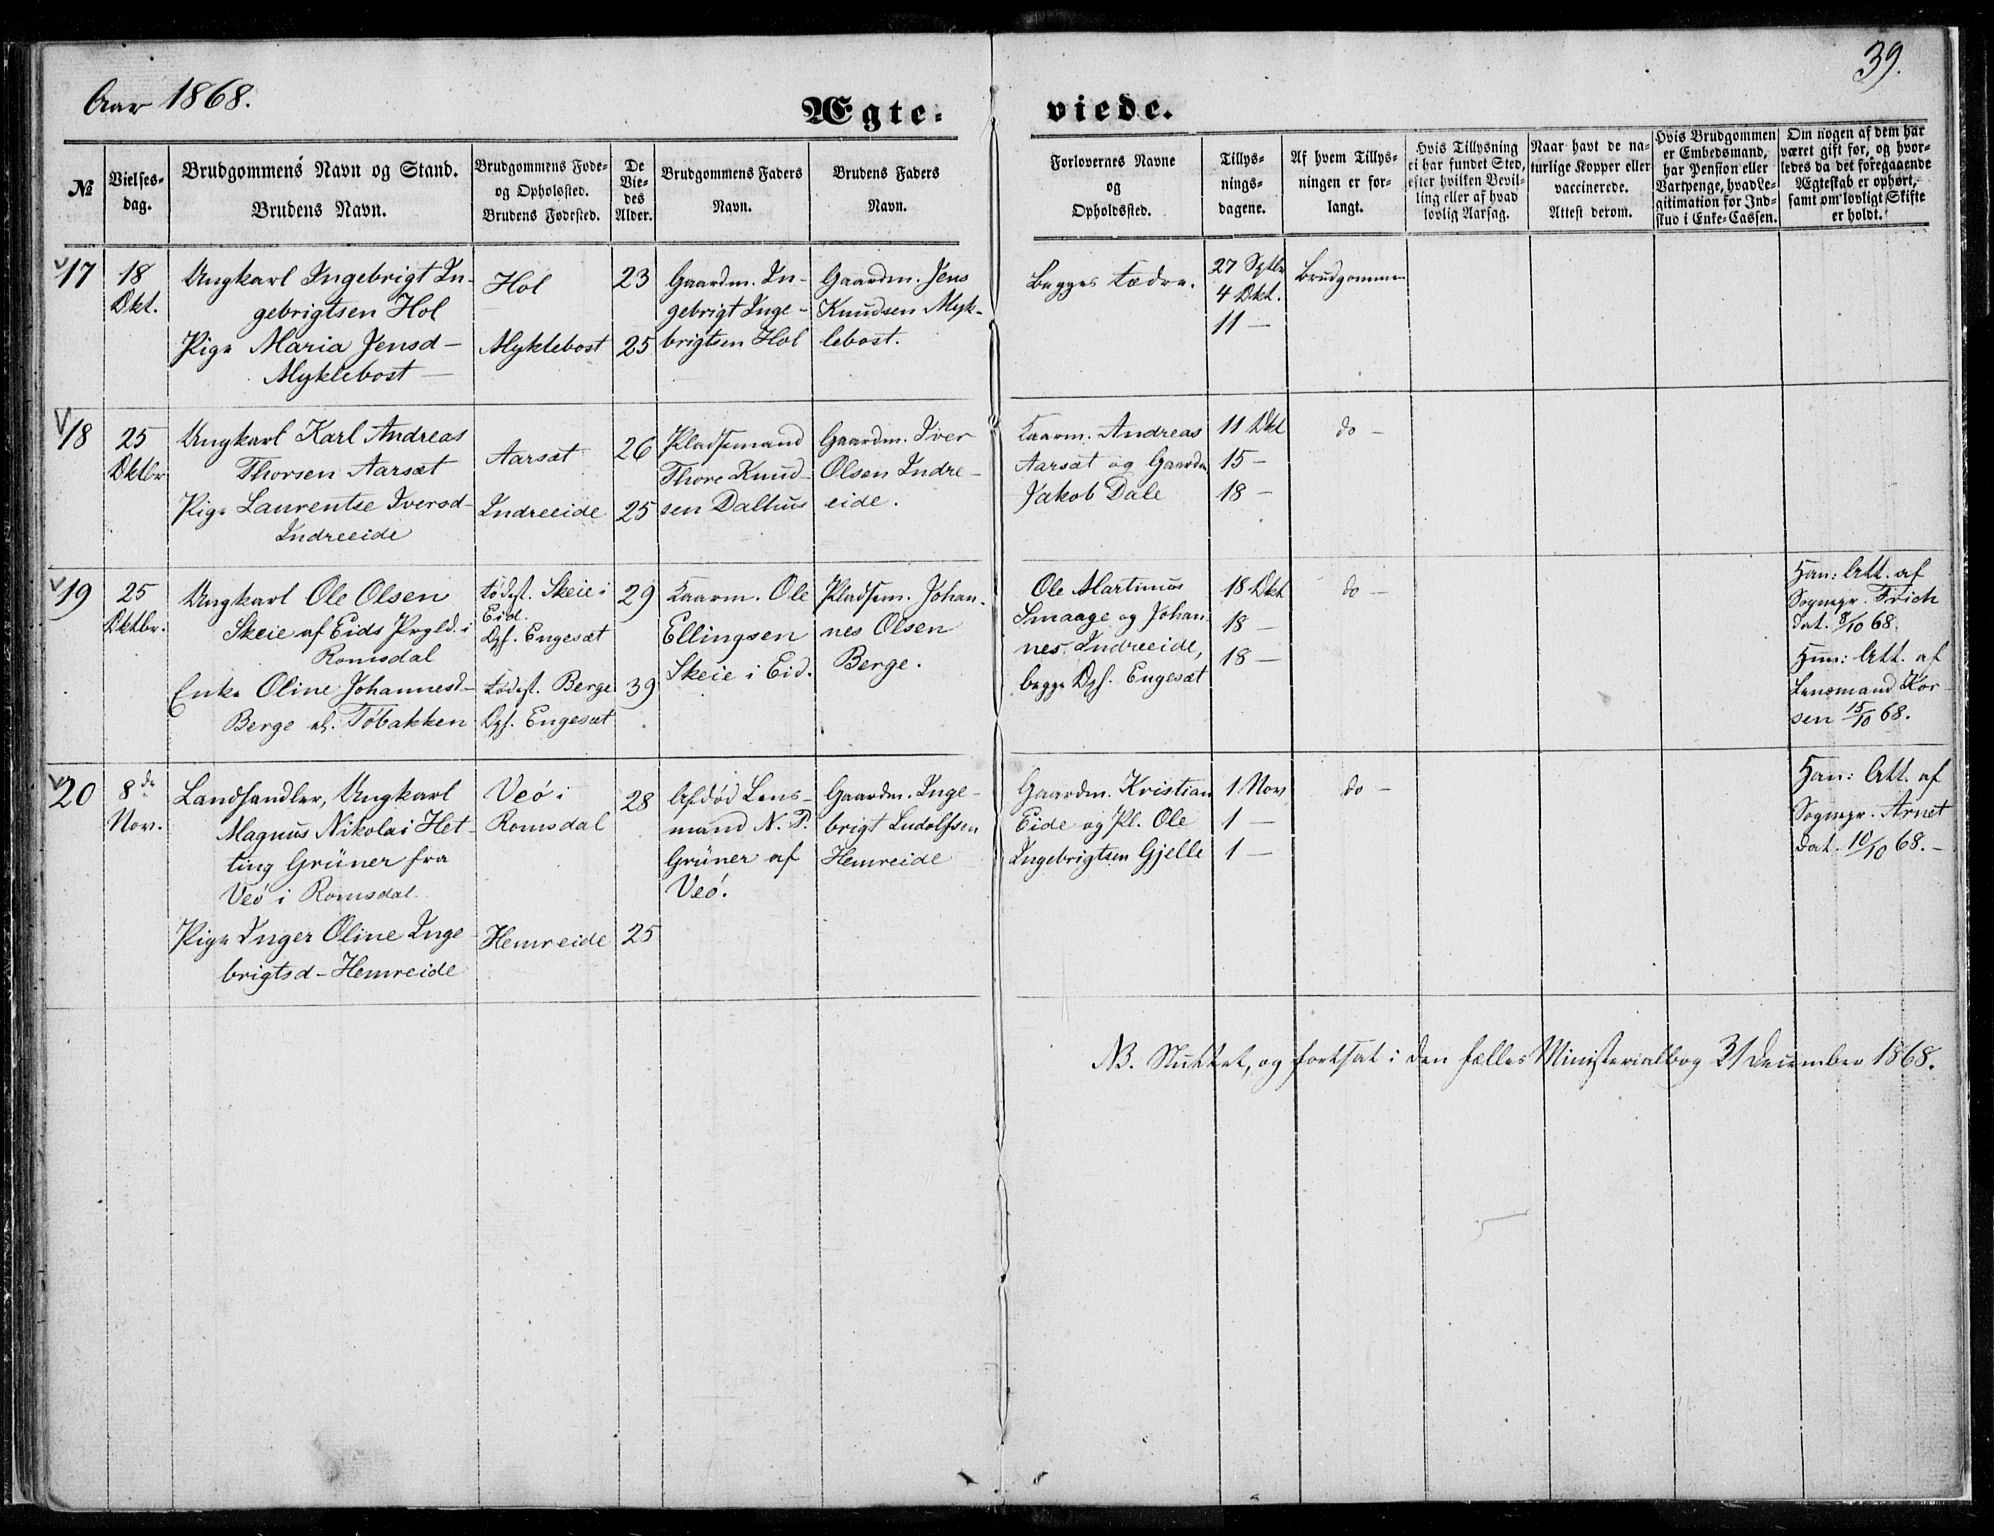 Aar 1868.
39.
Ægte-
viede.
№
Vielses-
dag.
Brudgommens Navn og Stand.
Brudens Navn.
Brudgommens Føde-
og Opholdsted.
Brudens Fødested.
De
Vie-
des
Alder.
Brudgommens Faders
Navn.
Brudens Faders
Navn.
Forlovernes Navne
og
Opholdssted.
Tillys-
nings-
dagene.
Af hvem Tillys-
ningen er for-
langt.
Hvis Tillysning
ei har fundet Sted,
efter hvilken Bevil-
ling eller af hvad
lovlig Aarsag.
Naar havt de na-
turlige Kopper eller
vaccinerede.
Attest derom.
Hvis Brudgommen
er Embedsmand,
har Pension eller
Vartpenge, hvad Le-
gitimation for Ind-
skud i Enke-Cassen.
Om nogen af dem har
været gift før, og hvor-
ledes da det foregaaende
Ægteskab er ophørt,
samt om lovligt Skifte
er holdt.
17
18
Okt.
Ungkarl Ingebrigt In-
gebrigtsen Hol
Pige Maria Jensd-
Myklebost
Hol
Myklebost
23
25
Gaardm. In-
gebrigt Inge-
brigtsen Hol
Gaardm. Jens
Knudsen Myk-
lebost.
Begges Fædre.
27 Sptbr
4 Okt.
11 -
Brudgommen
18
25
Oktbr
Ungkarl Karl Andreas
Thorsen Aarsæt
Pige Laurentse Iversd-
Indreeide
Aarsæt
Indreeide
26
25
Pladsemand
Thore Knud-
sen Dalhus
Gaardm. Iver
Olsen Indre-
eide.
Kaarm. Andreas
Aarsæt og Gaardm
Jakob Dale
11 Okt
15 -
18 -
do -
19
25
Oktbr.
Ungkarl Ole Olsen
Skeie af Eids Prgld. i
Romsdal
Enke Oline Johannesd-
Berge el. Töbakken
Födest. Skeie i
Eid.
Oph. Engesæt
Födest. Berge
Oph. Engesæt
29
39
Kaarm. Ole
Ellingsen
Skeie i Eid.
Pladsem. Johan-
nes Olsen
Berge.
Ole Martinus
Smaage og Johan-
nes Indreeide,
begge Oph. Engesæt
18 Okt
18 -
18 -
do -
Han: Att. af
Sognepr. Frich
dat. 8/10 68.
Hun: Att. af
Lensmand Kor-
sen 15/10 68.
20
8de
Nov.
Landhandler, Ungkarl
Magnus Nikolai Het-
ting Grüner fra
Veö i Romsdal.
Pige Inger Oline Inge-
brigtsd- Hemreide
Veö i
Romsdal
Hemreide
28
25
Afdöd Lens-
mand N. P.
Grüner af
Veö.
Gaardm. Inge-
brigt Ludolfsen
Hemreide
Gaardm. Kristian
Eide og Pl. Ole
Ingebrigtsen Gjelle
1 Nov
1 -
1 -
do -
Han: Att. af
Sognepr. Arnet
dat. 10/10 68. -
NB. Sluttet, og fortsat i den fælles Ministerialbog 31 December 1868.